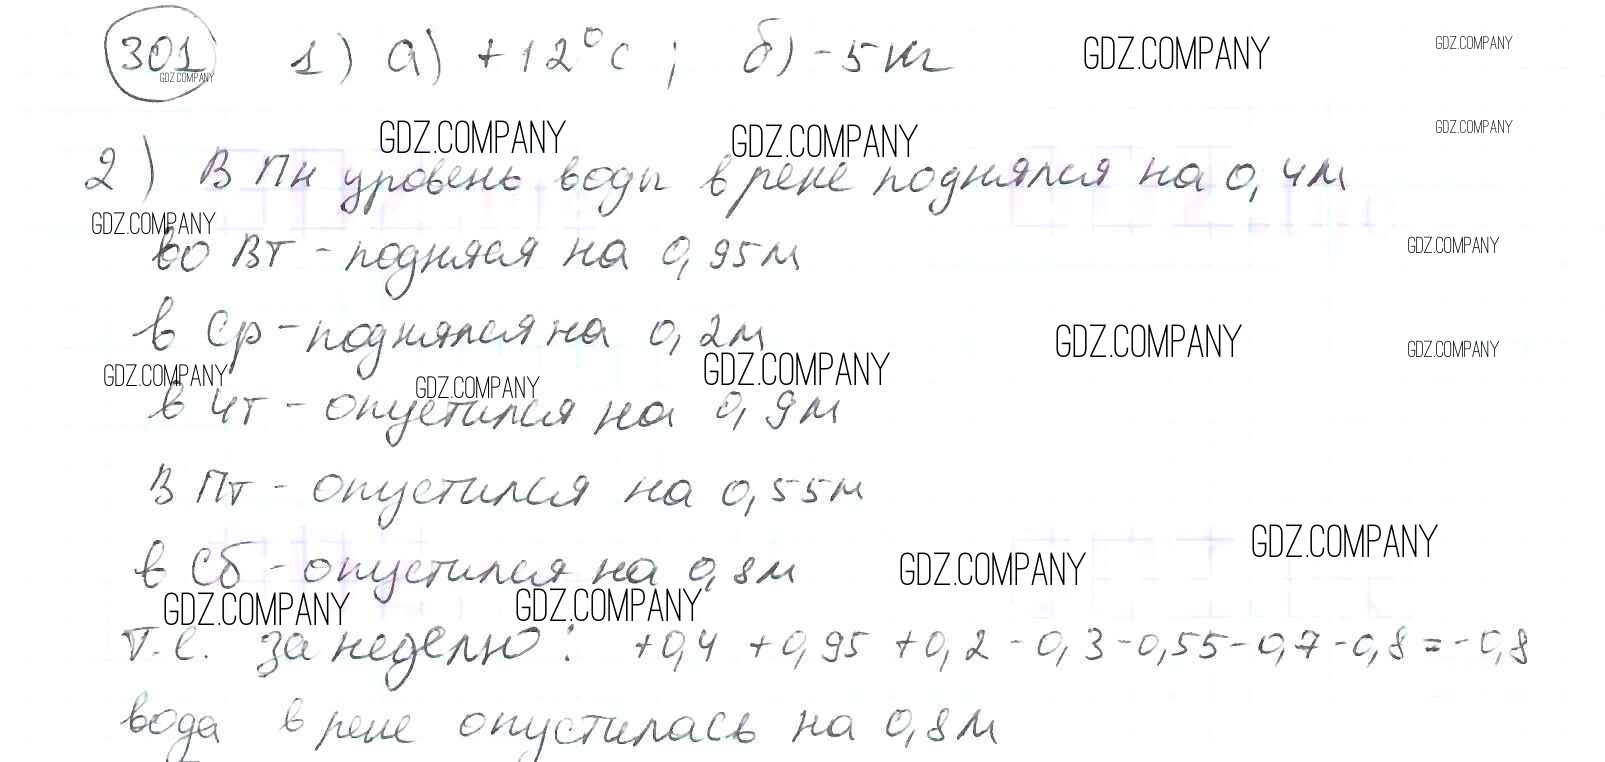 301 1) а) +12°С ; б) -5 м
GDZ.COMPANY GDZ.COMPANY GDZ.COMPANY
GDZ.COMPANY GDZ.COMPANY GDZ.COMPANY
2) В Пн уровень воды в реке поднялся на 0,4м
GDZ.COMPANY GDZ.COMPANY
во Вт - поднялся на 0,95м
в Ср - поднялся на 0,2м
GDZ.COMPANY GDZ.COMPANY
GDZ.COMPANY GDZ.COMPANY GDZ.COMPANY
в Чт - опустился на 0,9м
В Пт - опустился на 0,55м
GDZ.COMPANY GDZ.COMPANY
в Сб - опустился на 0,8м
GDZ.COMPANY GDZ.COMPANY
Т.е. за неделю: +0,4 +0,95 +0,2 - 0,3 - 0,55 - 0,7 - 0,8 = -0,8
вода в реке опустилась на 0,8м